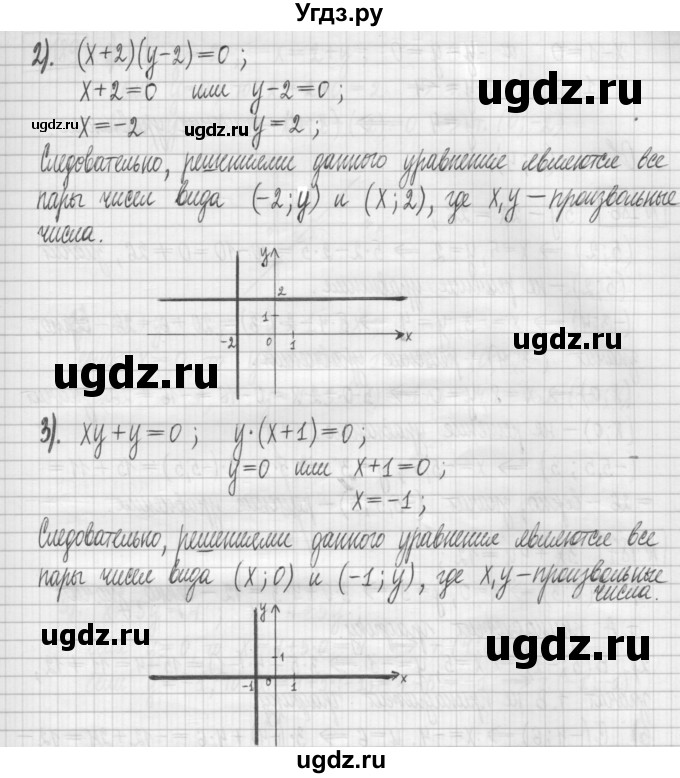 Угдз.ру
2). (x+2)(y-2)=0 ;
ugdz.ru
x+2=0 или y-2=0 ;
ugdz.ru x=-2 ugdz.ru y=2 ;
Следовательно, решениями данного уравнения являются все
пары чисел вида (-2; y) и (x; 2), где x, y – произвольные
числа.
y
2
1
-2 0 1 x
ugdz.ru
ugdz.ru
3). xy+y=0 ; y·(x+1)=0 ;
y=0 или x+1=0 ;
x=-1 ;
Следовательно, решениями данного уравнения являются все
пары чисел вида (x; 0) и (-1; y), где x, y – произвольные
числа.
y
ugdz.ru
ugdz.ru
1
-1 0 1 x
ugdz.ru